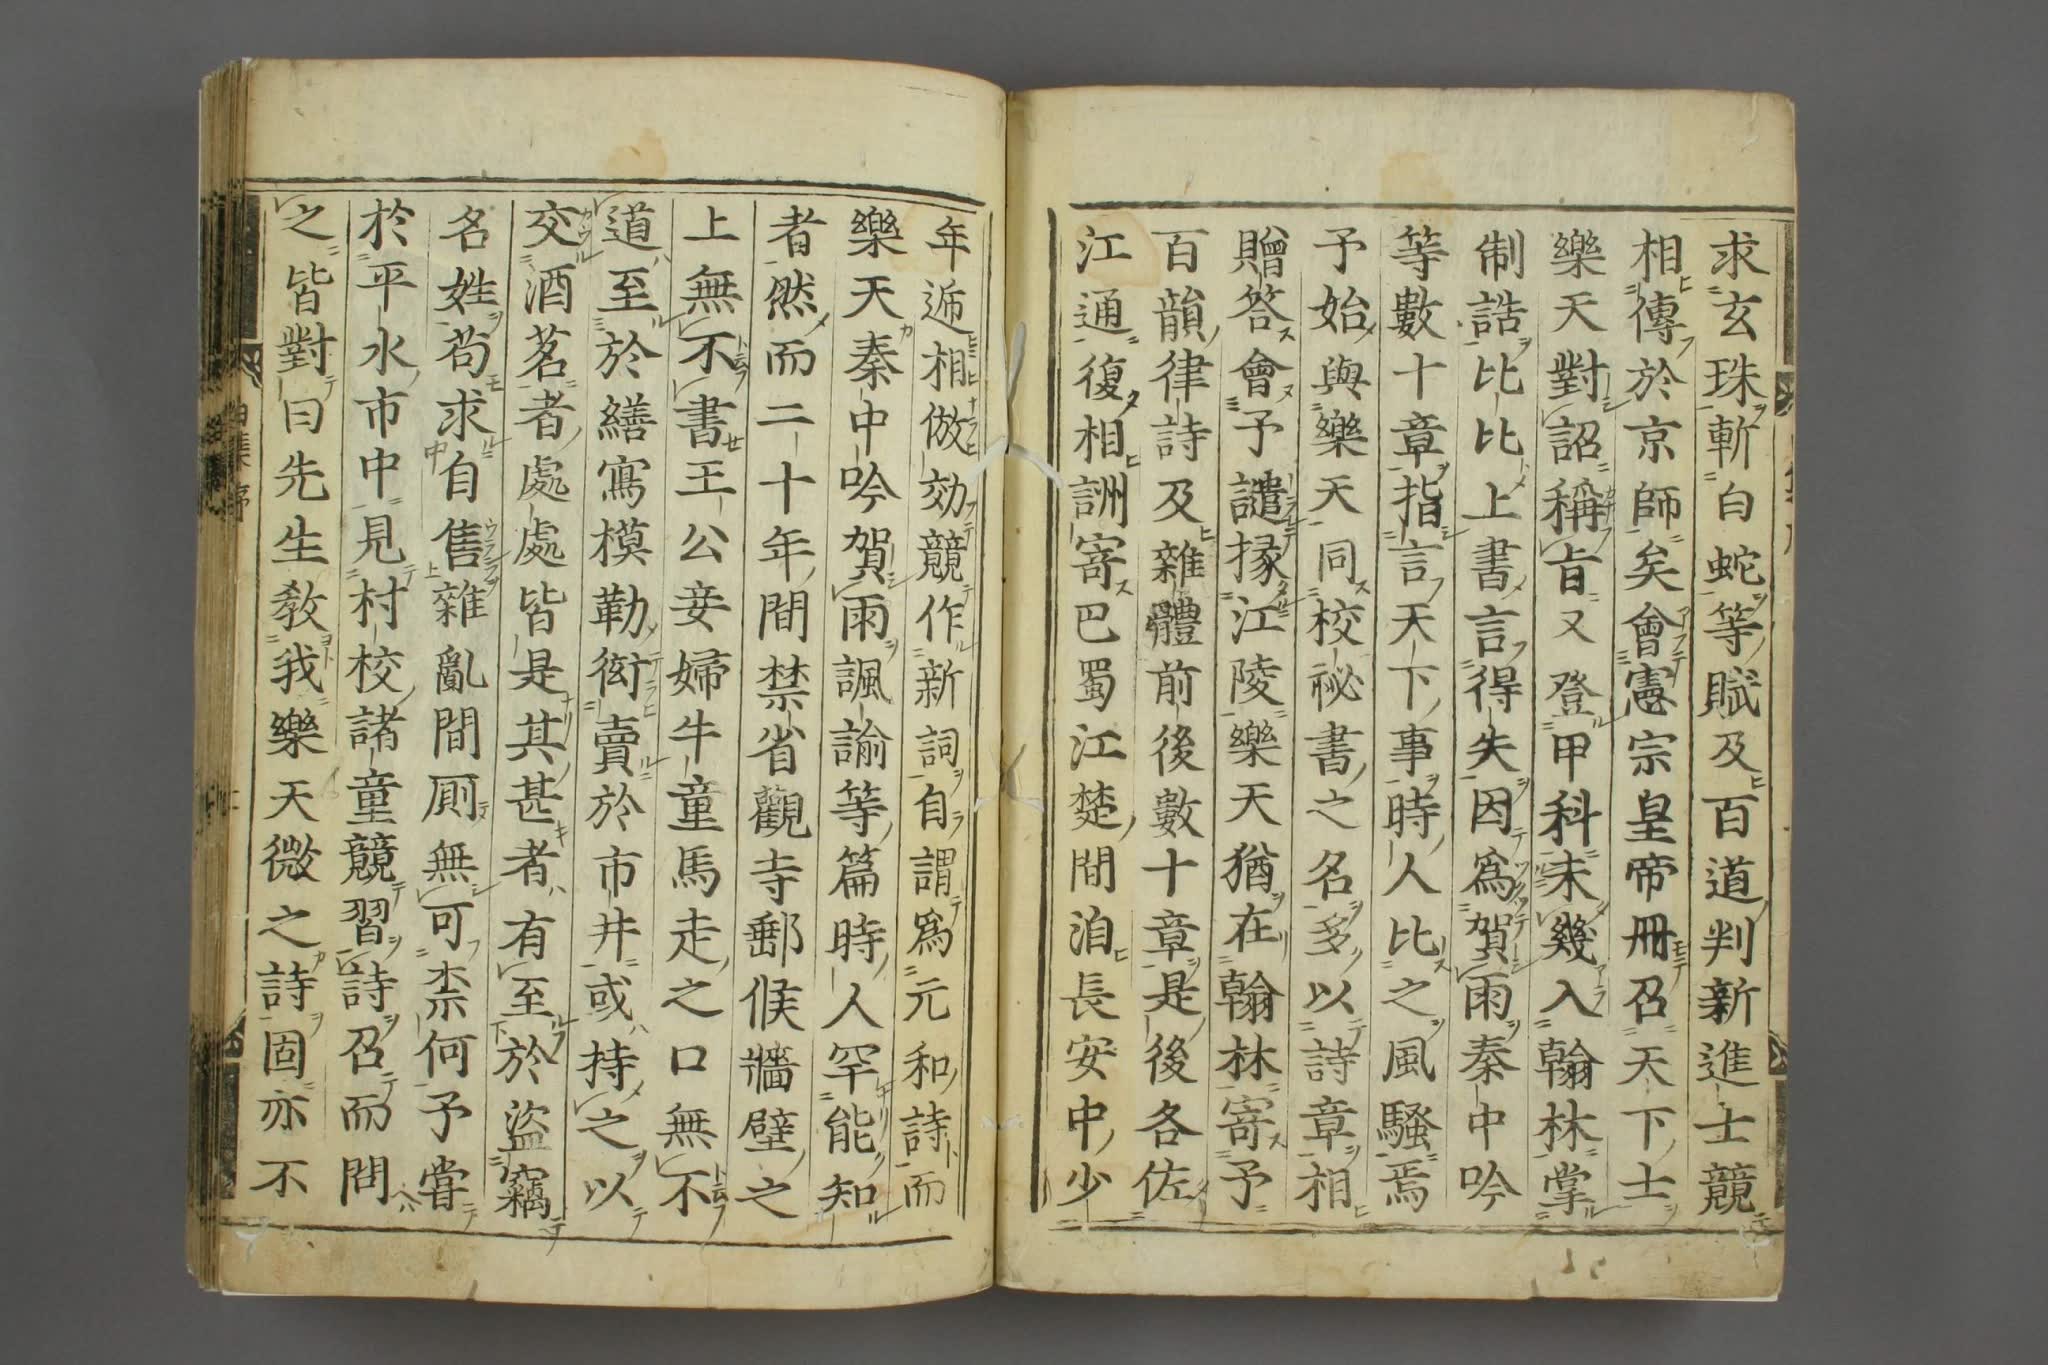 求玄珠斬白蛇等賦及百道判新進士競
相傳於京師矣會憲宗皇帝冊召天下士
樂天對詔稱旨又登甲科未幾入翰林掌
制誥比比上書言得失因爲賀雨秦中吟
等數十章指言天下事時人比之風騷焉
予始與樂天同校祕書之名多以詩章相
贈答會予譴掾江陵樂天猶在翰林寄予
百韻律詩及雜體前後數十章是後各佐
江通復相詶寄巴蜀江楚間洎長安中少
年遞相倣効競作新詞自謂爲元和詩而
樂天秦中吟賀雨諷諭等篇時人罕能知
者然而二十年間禁省觀寺郵候牆壁之
上無不書王公妾婦牛童馬走之口無不
道至於繕寫模勒衒賣於市井或持之以
交酒茗者處處皆是其甚者有至於盜竊
名姓苟求自售雜亂間厠無可柰何予嘗
於平水市中見村校諸童競習詩召而問
之皆對曰先生敎我樂天微之詩固亦不
白集序